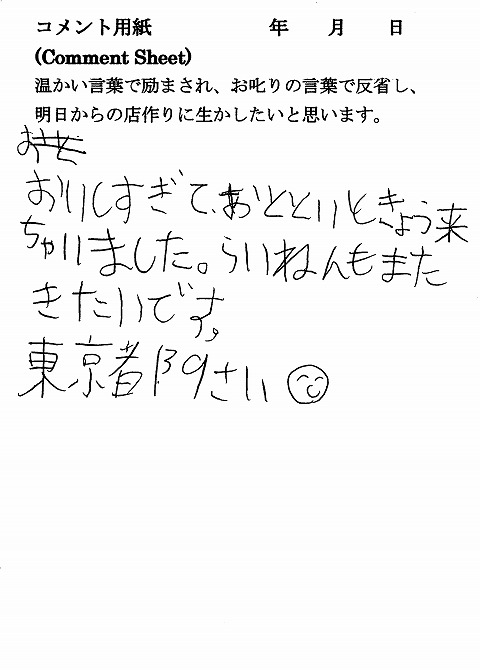 コメント用紙 年 月 日
(Comment Sheet)
温かい言葉で励まされ、お叱りの言葉で反省し、
明日からの店作りに生かしたいと思います。
おいしすぎて、おとといときょう来
ちゃいました。らいねんもまた
きたいです。
東京都 9さい